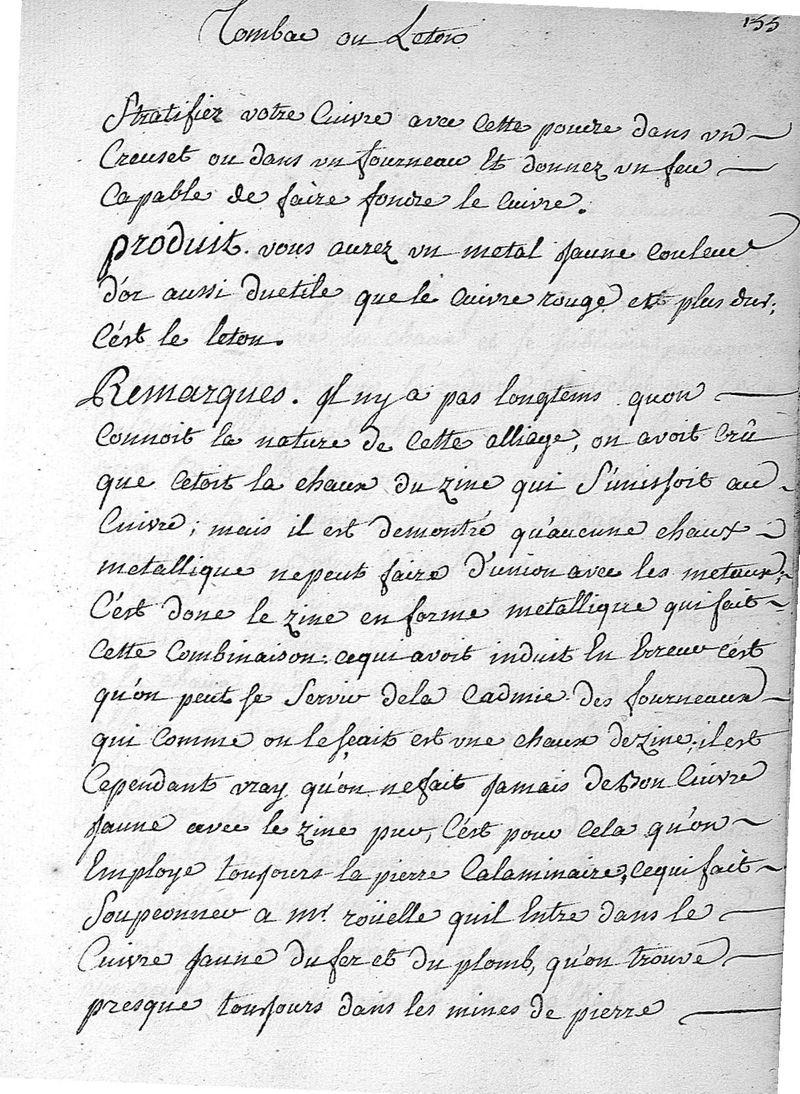 155
Tombac ou Leton
Stratifiez votre Cuivre avec Cette poudre dans un
Creuset ou dans un fourneau Et donnez un feu
Capable de faire fondre le Cuivre.
produit. vous aurez un metal jaune Couleur
d'or aussi ductile que le Cuivre rouge et plus dur;
C'est le leton.
Remarques. Il ny a pas longtems quon
Connoit la nature de Cette alliage, on avoit Crû
que Cetoit la chaux du zinc qui S'unissoit au
Cuivre; mais il est demontré qu'aucune chaux
metallique ne peut faire d'union avec les metaux;
C'est donc le zinc en forme metallique qui fait
Cette Combinaison. ce qui avoit induit En Erreur c'est
qu'on peut se Servir de la Cadmie des fourneaux
qui Comme on le sçait est une chaux de zinc; il est
Cependant vray qu'on ne fait Jamais de Bon Cuivre
jaune avec le zinc pur, C'est pour Cela qu'on
Employe toujours la pierre Calaminaire, ce qui fait
Soupçonner a mr. roüelle quil Entre dans le
Cuivre jaune du fer et du plomb, qu'on trouve
presque toujours dans les mines de pierre